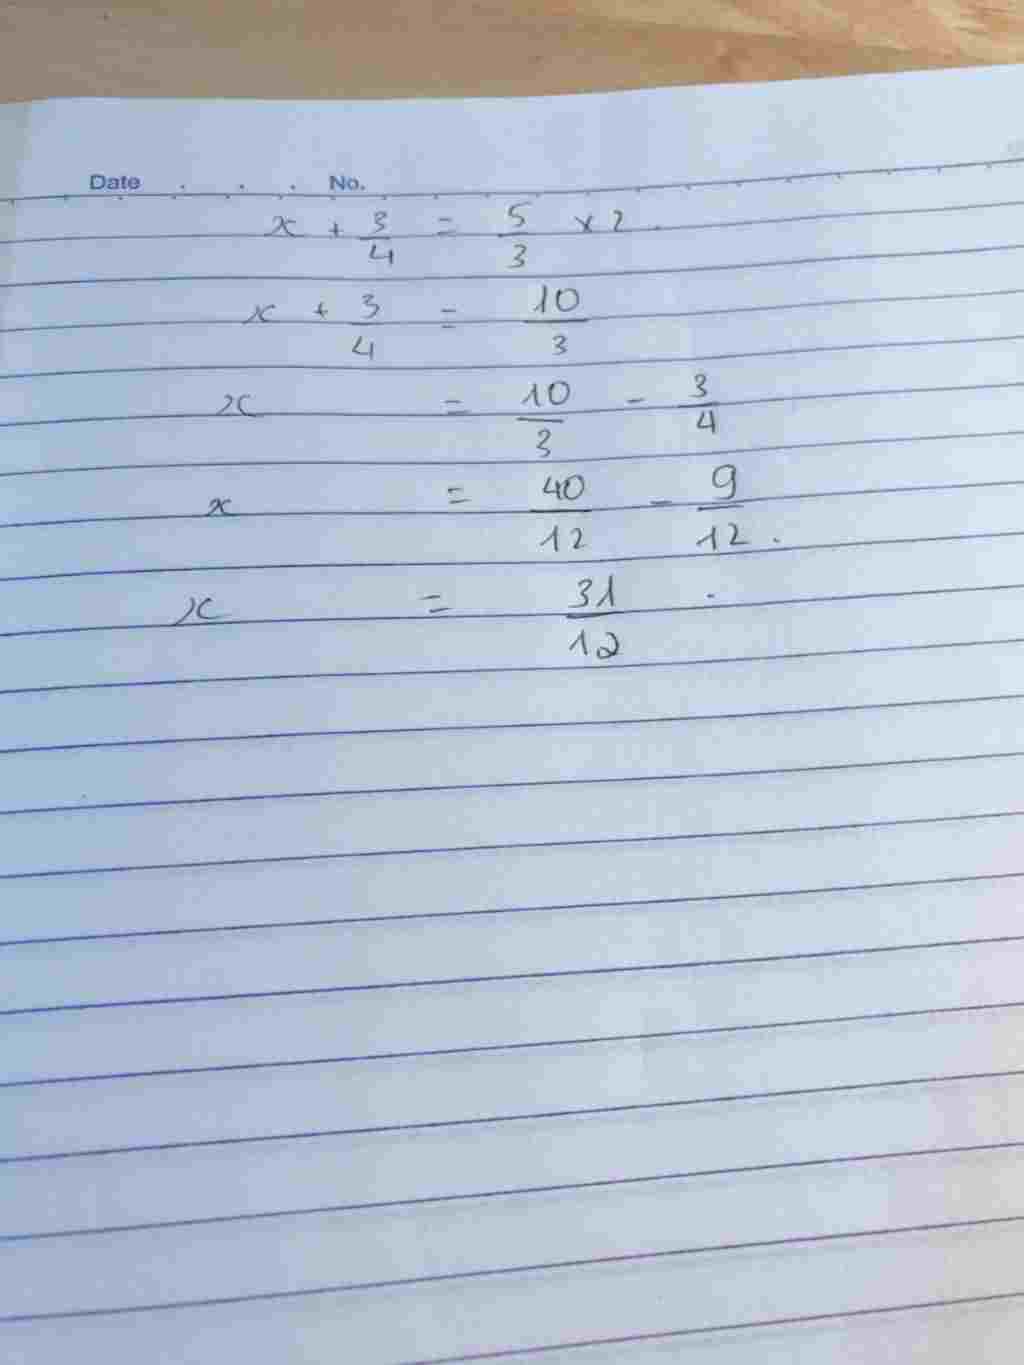 Date . . . No.
x + 3/4 = 5/3 × 2.
x + 3/4 = 10/3
x = 10/3 - 3/4
x = 40/12 - 9/12.
x = 31/12.